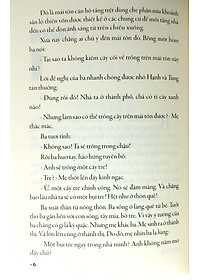 Đó là mái tôn cán hạ tầng trệt dùng che phần mái khoảng
sân lộ thiên vốn được thiết kế ở các chung cư để mỗi tầng nhà
đều có thể đón ánh sáng từ trên chiếu xuống.
Xưa nay chẳng ai chú ý đến mái tôn đó. Bỗng một hôm
ba nói:
- Tại sao ta không kiếm cây cối về trồng trên mái tôn này
nhỉ?
Lời đề nghị của ba nhanh chóng được nhỏ Hạnh và Tùng
tán thưởng:
- Đúng rồi đó! Nhà ta ở thành phố, chả có tí cây xanh
nào!
- Nhưng làm sao có thể trồng cây trên mái tôn được? - Mẹ
thắc mắc.
Ba tươi tỉnh:
- Không sao! Ta sẽ trồng trong chậu!
Rồi ba huơ tay, hào hứng tuyên bố:
- Anh sẽ trồng cây tre!
- Tre? - Mẹ thốt lên đầy kinh ngạc.
- Ừ, một cây tre chính cống. Nó sẽ đâm măng. Và chẳng
bao lâu nhà ta sẽ có một bụi tre! Hệt như ở thôn quê!
Ba xuất thân từ nông thôn. Ba sống ở làng quê từ bé. Tuổi
thơ ba gắn liền với con sông, rẫy mía, bờ tre. Vì vậy ý tưởng của
ba chẳng có gì là kỳ quặc. Nhưng mẹ khác ba. Mẹ sinh ra và lớn
lên ở thành thị. Do đó, mẹ nhìn ba lạ lùng:
- Một bụi tre ngay trong nhà mình? Anh không nằm mơ
đấy chứ?
6